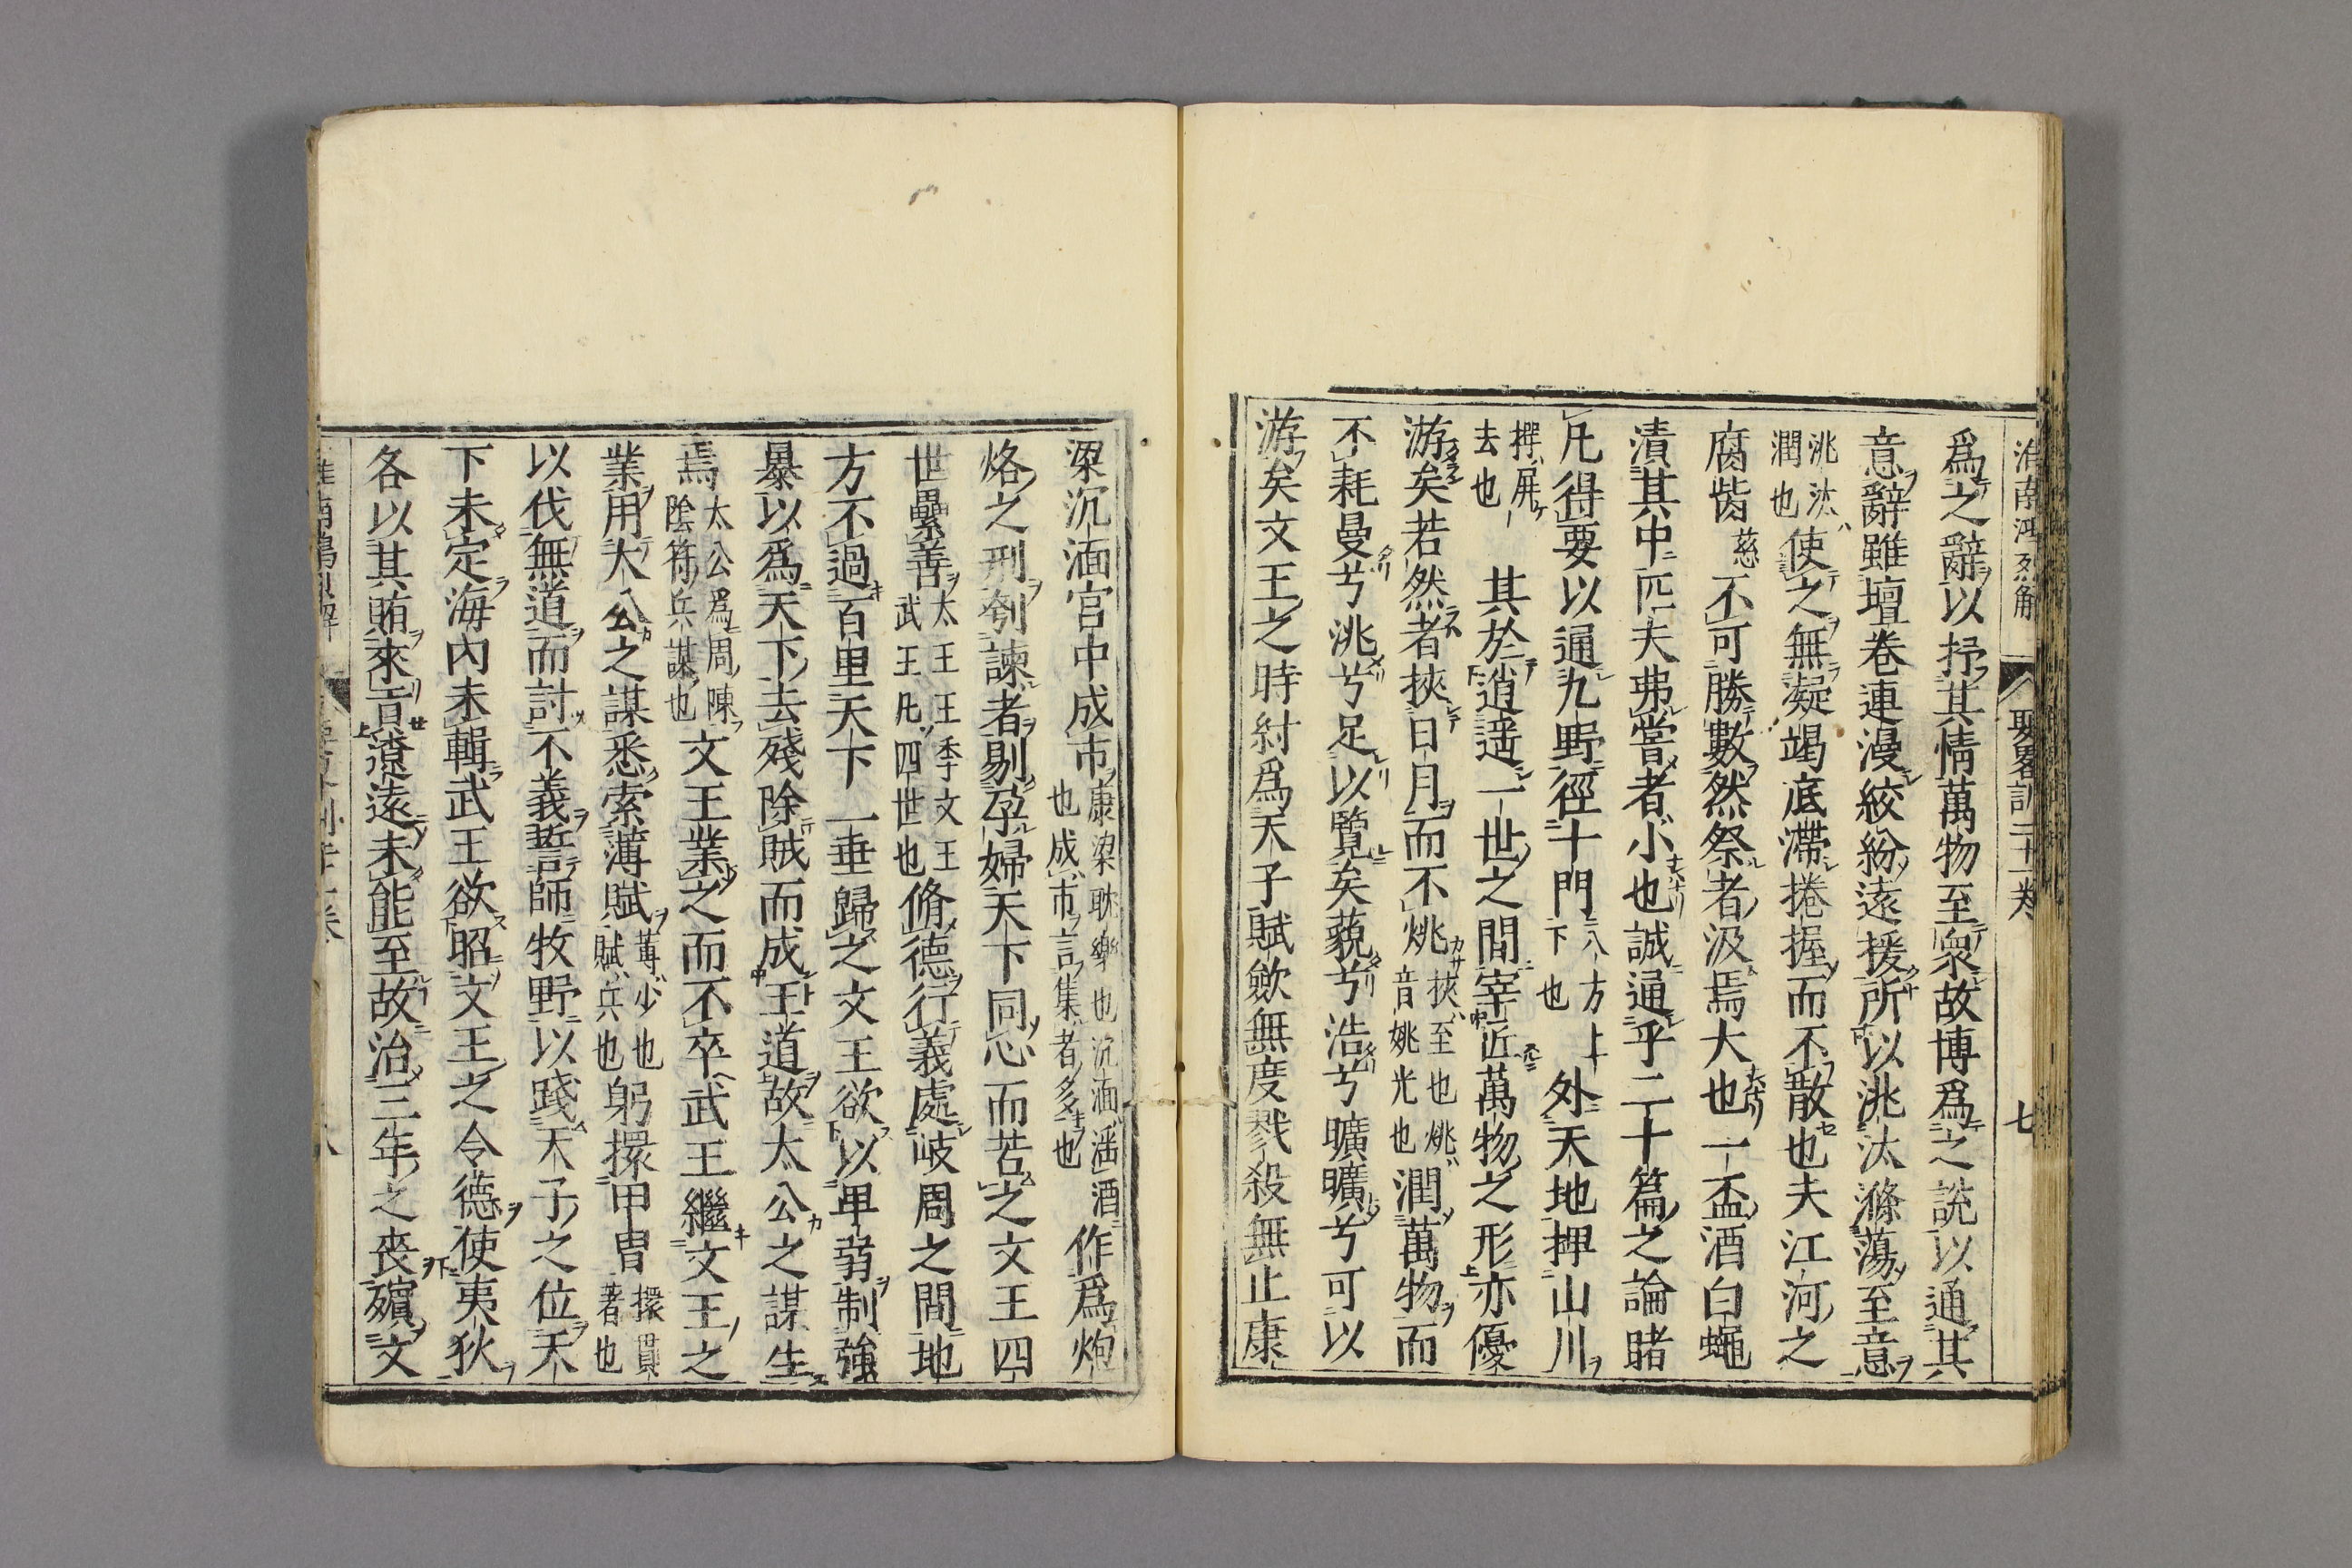 爲之辭以抒其情萬物至衆故博爲之說以通其
意辭雖壇卷連漫絞紛遠援所以洮汰滌蕩至意
洮汰潤也使之無凝竭底滯捲握而不散也夫江河之
腐胔慈不可勝數然祭者汲焉大也一盃酒白蠅
漬其中匹夫弗嘗者小也誠通乎二十篇之論睹
凡得要以通九野徑十門八方上下也外天地捭山川
捭屏去也其於逍遥一世之間宰匠萬物之形亦優
游矣若然者挾日月而不烑挾至也烑音姚光也潤萬物而
不耗曼兮洮兮足以覽矣藐兮浩兮曠曠兮可以
游矣文王之時紂爲天子賦斂無度戮殺無止康
梁沉湎宫中成市康梁耽樂也沉湎滛酒也成市言集者多也作爲炮
烙之刑刳諫者剔孕婦天下同心而苦之文王四
世纍善太王王季文王武王凡四世也脩德行義處岐周之間地
方不過百里天下二垂歸之文王欲以卑弱制強
暴以爲天下去殘除賊而成王道故太公之謀生
焉太公爲周陳陰符兵謀也文王業之而不卒武王繼文王之
業用大公之謀悉索薄賦薄少也賦兵也躬擐甲胄擐貫著也
以伐無道而討不義誓師牧野以踐天子之位天
下未定海內未輯武王欲昭文王之令德使夷狄
各以其賄來貢遼遠未能至故治三年之喪殯文